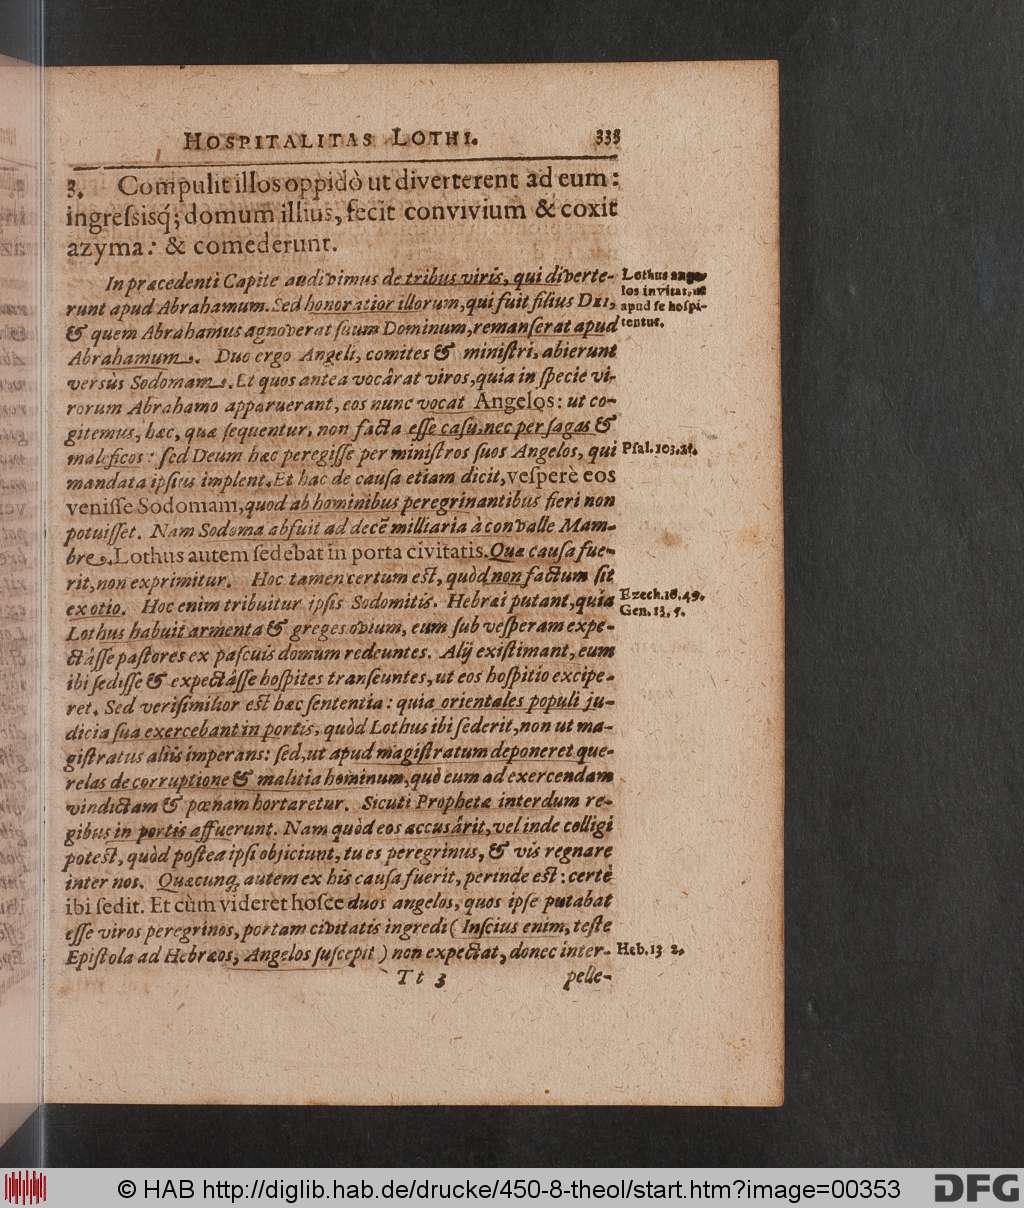 HOSPITALITAS LOTHI. 335
3. Compulit illos oppidò ut diverterent ad eum:
ingreſsisq́; domum illius, fecit convivium & coxit
azyma: & comederunt.
In præcedenti Capite audivimus de tribus viris, qui diverte-
runt apud Abrahamum. Sed honoratior illorum, qui fuit filius DEI,
& quem Abrahamus agnoverat ſuum Dominum, remanſerat apud
Abrahamum. Duo ergo Angeli, comites & miniſtri, abierunt
versùs Sodomam. Et quos antea vocârat viros, quia in ſpecie vi-
rorum Abrahamo apparuerant, eos nunc vocat Angelos: ut co-
gitemus, hæc, quæ ſequentur, non facta eſſe caſu, nec per ſagas &
maleficos: ſed Deum hæc peregiſſe per miniſtros ſuos Angelos, qui
mandata ipſius implent. Et hac de cauſa etiam dicit, veſperè eos
veniſſe Sodomam, quod ab hominibus peregrinantibus fieri non
potuiſſet. Nam Sodoma abfuit ad decẽ milliaria à convalle Mam-
bre. Lothus autem ſedebat in porta civitatis. Quæ cauſa fue-
rit, non exprimitur. Hoc tamen certum eſt, quòd non factum ſit
ex otio. Hoc enim tribuitur ipſis Sodomitis. Hebræi putant, quia
Lothus habuit armenta & greges ovium, eum ſub veſperam expe-
ctâſſe paſtores ex paſcuis domum redeuntes. Alij exiſtimant, eum
ibi ſediſſe & expectâſſe hoſpites tranſeuntes, ut eos hoſpitio excipe-
ret. Sed veriſimilior eſt hæc ſententia: quia orientales populi ju-
dicia ſua exercebant in portis, quòd Lothus ibi ſederit, non ut ma-
giſtratus aliis imperans: ſed, ut apud magiſtratum deponeret que-
relas de corruptione & malitia hominum, quò eum ad exercendam
vindictam & pœnam hortaretur. Sicuti Prophetæ interdum re-
gibus in portis affuerunt. Nam quòd eos accusârit, vel inde colligi
poteſt, quòd poſtea ipſi objiciunt, tu es peregrinus, & vis regnare
inter nos. Quæcunq; autem ex his cauſa fuerit, perinde eſt: certè
ibi ſedit. Et cùm videret hoſce duos angelos, quos ipſe putabat
eſſe viros peregrinos, portam civitatis ingredi (Inſcius enim, teſte
Epiſtola ad Hebræos, Angelos ſuſcepit) non expectat, donec inter-
Tt 3 pelle-
Lothus ange-
los invitat, ut
apud ſe hoſpi-
tentur.
Pſal. 103, 21.
Ezech. 16, 49.
Gen. 13, 5.
Heb. 13 2.
© HAB http://diglib.hab.de/drucke/450-8-theol/start.htm?image=00353
DFG